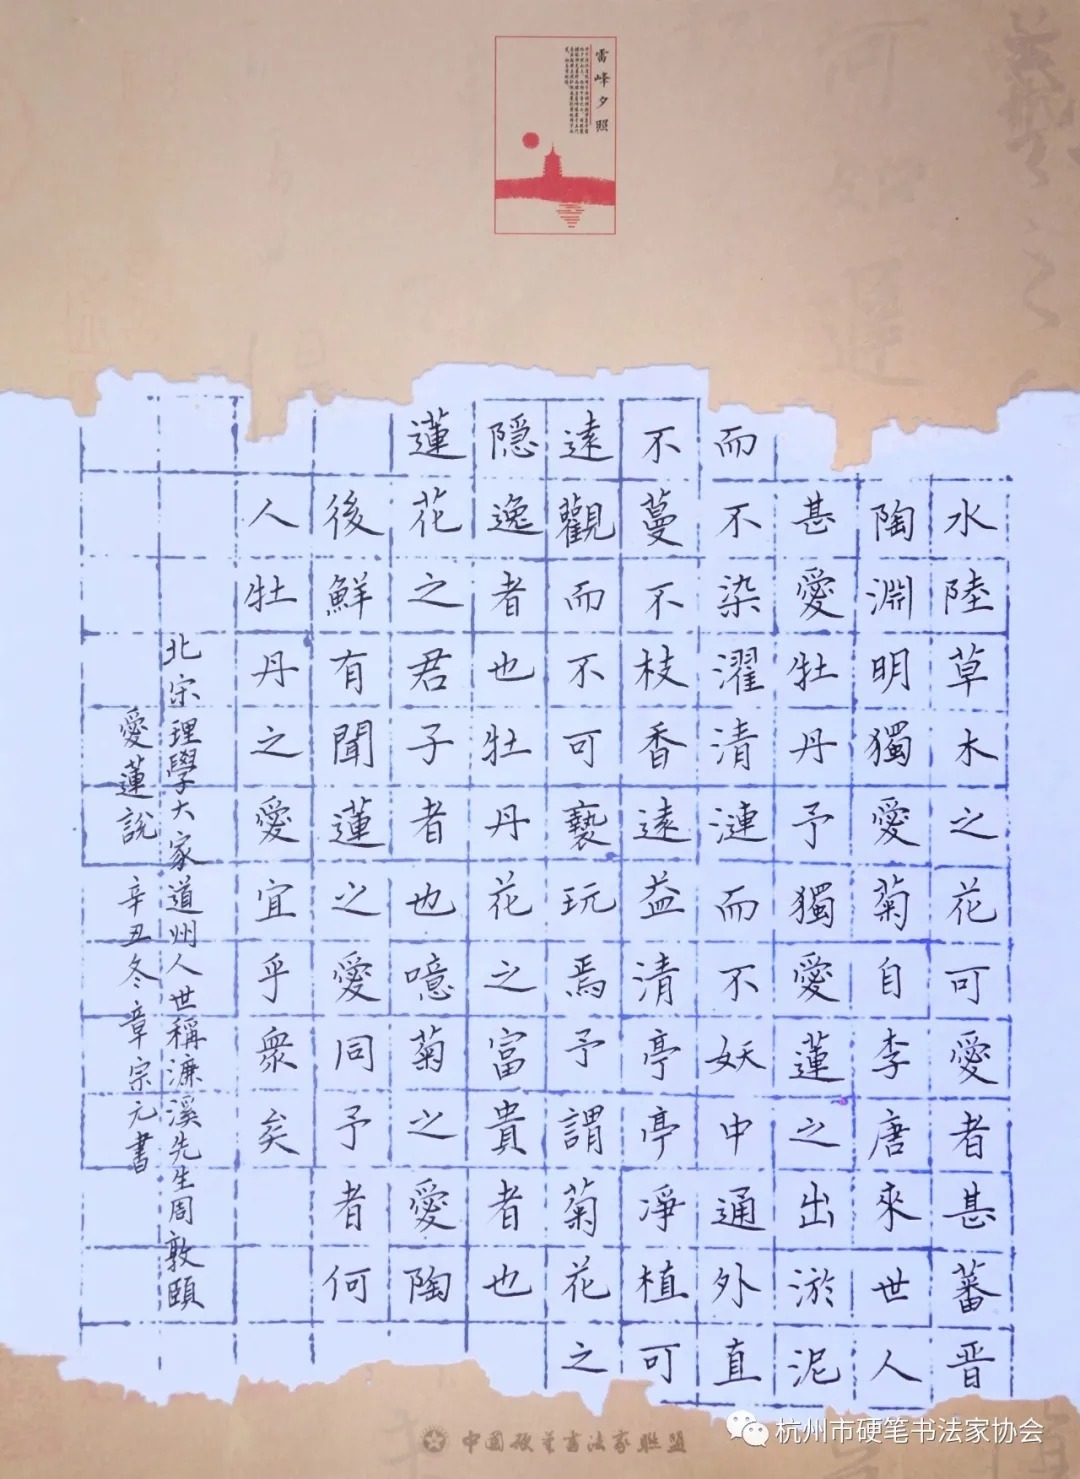 雷峰夕照
水陸草木之花可愛者甚蕃晋
陶淵明獨愛菊自李唐來世人
甚愛牡丹予獨愛蓮之出淤泥
而不染濯清漣而不妖中通外直
不蔓不枝香遠益清亭亭淨植可
遠觀而不可褻玩焉予謂菊花之
隱逸者也牡丹花之富貴者也
蓮花之君子者也噫菊之愛陶
後鮮有聞蓮之愛同予者何
人牡丹之愛宜乎衆矣
北宋理學大家道州人世稱濂溪先生周敦頤
愛蓮說 辛丑冬章宗元書
中国硬笔书法家联盟
杭州市硬笔书法家协会